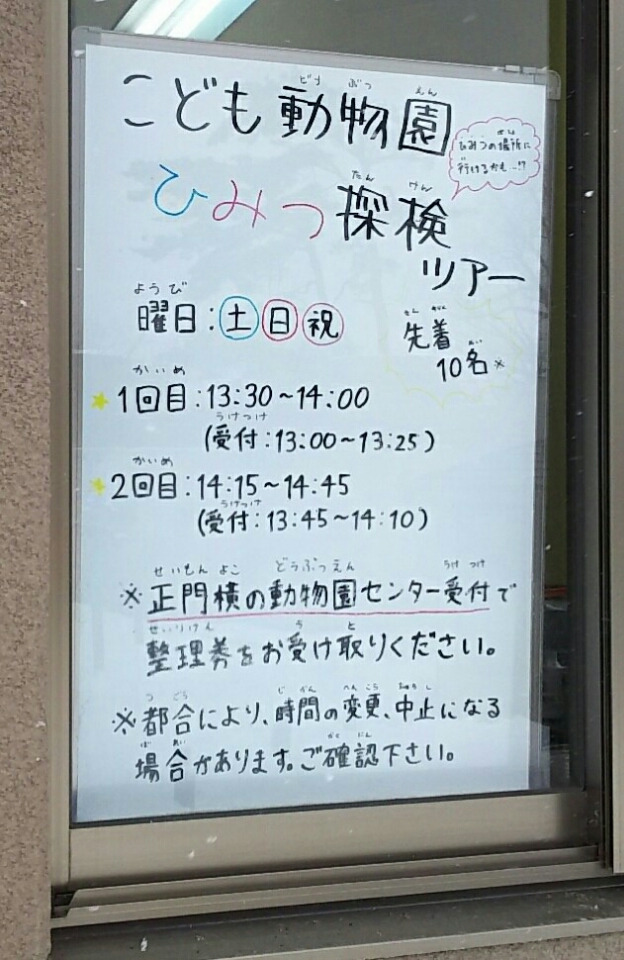 こども動物園
ひみつの場所に
行けるかも…!?
ひみつ探検
ツアー
曜日:土日祝
先着
10名※
1回目:13:30~14:00
(受付:13:00~13:25)
2回目:14:15~14:45
(受付:13:45~14:10)
※正門横の動物園センター受付で
整理券をお受け取りください。
※都合により、時間の変更、中止になる
場合があります。ご確認下さい。